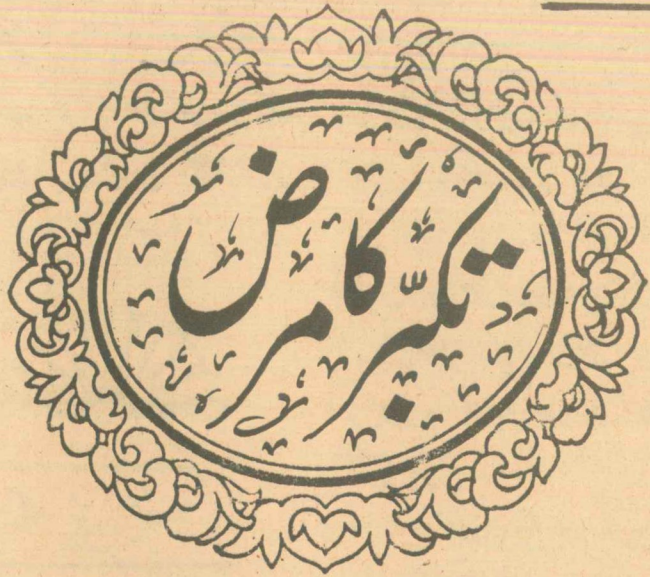 تکبّر کا مرض